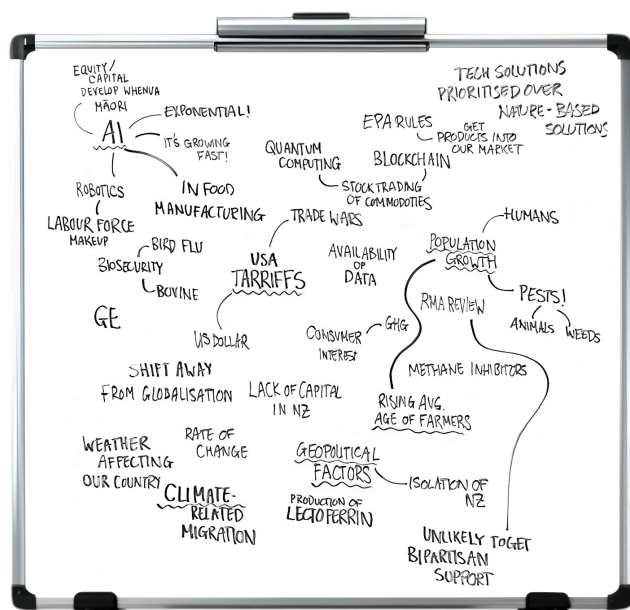 EQUITY/
CAPITAL
DEVELOP WHENUA
MĀORI
AI
EXPONENTIAL!
IT'S GROWING
FAST!
ROBOTICS
LABOUR FORCE
MAKEUP
IN FOOD
MANUFACTURING
TECH SOLUTIONS
PRIORITISED OVER
NATURE-BASED
SOLUTIONS
EPA RULES
GET
PRODUCTS INTO
OUR MARKET
QUANTUM
COMPUTING
BLOCKCHAIN
STOCK TRADING
OF COMMODITIES
TRADE WARS
USA
TARRIFFS
US DOLLAR
BIRD FLU
BIOSECURITY
BOVINE
GE
AVAILABILITY
OF
DATA
POPULATION
GROWTH
HUMANS
PESTS!
ANIMALS
WEEDS
RMA REVIEW
GHG
CONSUMER
INTEREST
METHANE INHIBITORS
SHIFT AWAY
FROM GLOBALISATION
LACK OF CAPITAL
IN NZ
RISING AVG.
AGE OF FARMERS
WEATHER
AFFECTING
OUR COUNTRY
RATE OF
CHANGE
CLIMATE-
RELATED
MIGRATION
GEOPOLITICAL
FACTORS
ISOLATION OF
NZ
PRODUCTION OF
LECTOFERRIN
UNLIKELY TO GET
BIPARTISAN
SUPPORT